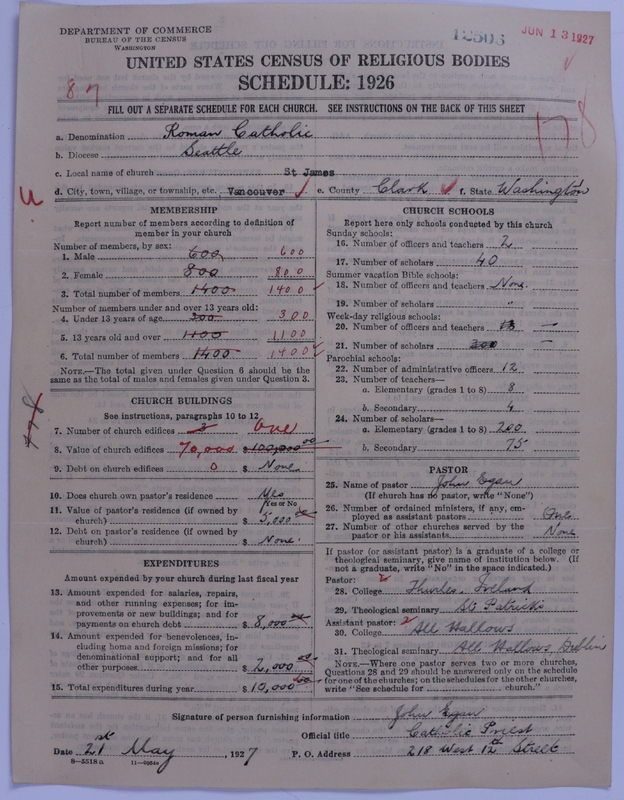 DEPARTMENT OF COMMERCE
BUREAU OF THE CENSUS
WASHINGTON
12503
JUN 13 1927
UNITED STATES CENSUS OF RELIGIOUS BODIES
SCHEDULE: 1926
87
178
FILL OUT A SEPARATE SCHEDULE FOR EACH CHURCH. SEE INSTRUCTIONS ON THE BACK OF THIS SHEET
a. Denomination Roman Catholic
b. Diocese Seattle
c. Local name of church St James
d. City, town, village, or township, etc. Vancouver e. County Clark f. State Washington
MEMBERSHIP
Report number of members according to definition of
member in your church
Number of members, by sex:
1. Male 600 600
2. Female 800 800
3. Total number of members 1400 1400
Number of members under and over 13 years old:
4. Under 13 years of age 300 300
5. 13 years old and over 1100 1100
6. Total number of members 1400 1400
NOTE.—The total given under Question 6 should be the
same as the total of males and females given under Question 3.
CHURCH BUILDINGS
See instructions, paragraphs 10 to 12
7. Number of church edifices 3 One
8. Value of church edifices 70,000 $ 100,000 00
9. Debt on church edifices 0 $ None
10. Does church own pastor's residence Yes
(Yes or No)
11. Value of pastor's residence (if owned by
church) $ 5,000
12. Debt on pastor's residence (if owned by
church) $ None.
EXPENDITURES
Amount expended by your church during last fiscal year
13. Amount expended for salaries, repairs,
and other running expenses; for im-
provements or new buildings; and for
payments on church debt $ 8,000
14. Amount expended for benevolences, in-
cluding home and foreign missions; for
denominational support; and for all
other purposes $ 2,000 00
15. Total expenditures during year $ 10,000 00
CHURCH SCHOOLS
Report here only schools conducted by this church
Sunday schools:
16. Number of officers and teachers 2
17. Number of scholars 40
Summer vacation Bible schools:
18. Number of officers and teachers None.
19. Number of scholars "
Week-day religious schools:
20. Number of officers and teachers —
21. Number of scholars 200 —
Parochial schools:
22. Number of administrative officers 12
23. Number of teachers—
a. Elementary (grades 1 to 8) 8
b. Secondary 4
24. Number of scholars—
a. Elementary (grades 1 to 8) 200
b. Secondary 75
PASTOR
25. Name of pastor John Egan
(If church has no pastor, write "None")
26. Number of ordained ministers, if any, em-
ployed as assistant pastors One
27. Number of other churches served by the
pastor or his assistants None
If pastor (or assistant pastor) is a graduate of a college or
theological seminary, give name of institution below. (If
not a graduate, write "No" in the space indicated.)
Pastor: 2
28. College Thurles, Ireland
29. Theological seminary St. Patricks
Assistant pastor: 2
30. College All Hallows
31. Theological seminary All Hallows, Dublin
NOTE.—Where one pastor serves two or more churches,
Questions 28 and 29 should be answered only on the schedule
for one of the churches; on the schedules for the other churches,
write "See schedule for church."
Signature of person furnishing information John Egan
Official title Catholic Priest
Date 21st May, 1927 P. O. Address 218 West 12th Street
8—5518 a